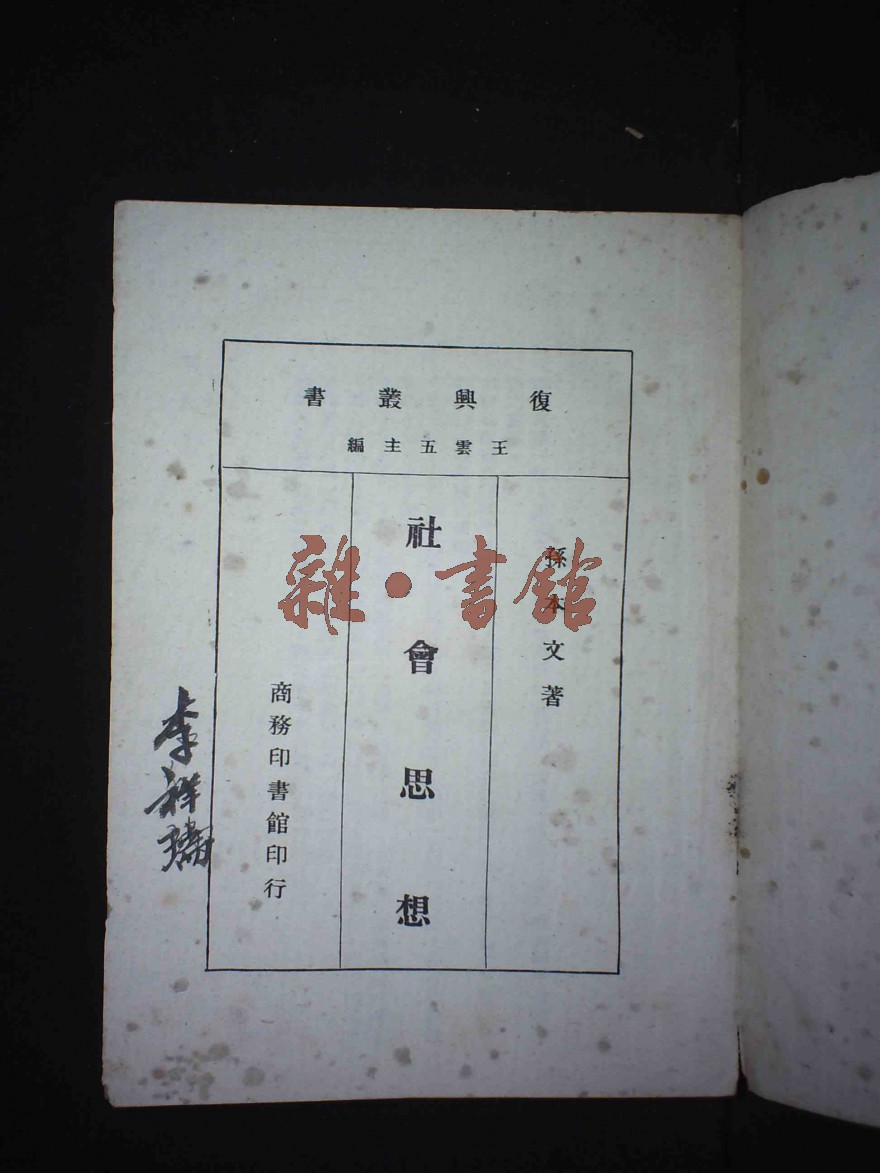 復興叢書
王雲五主編
孫本文著
社會思想
商務印書館印行
雜·書館
李祥